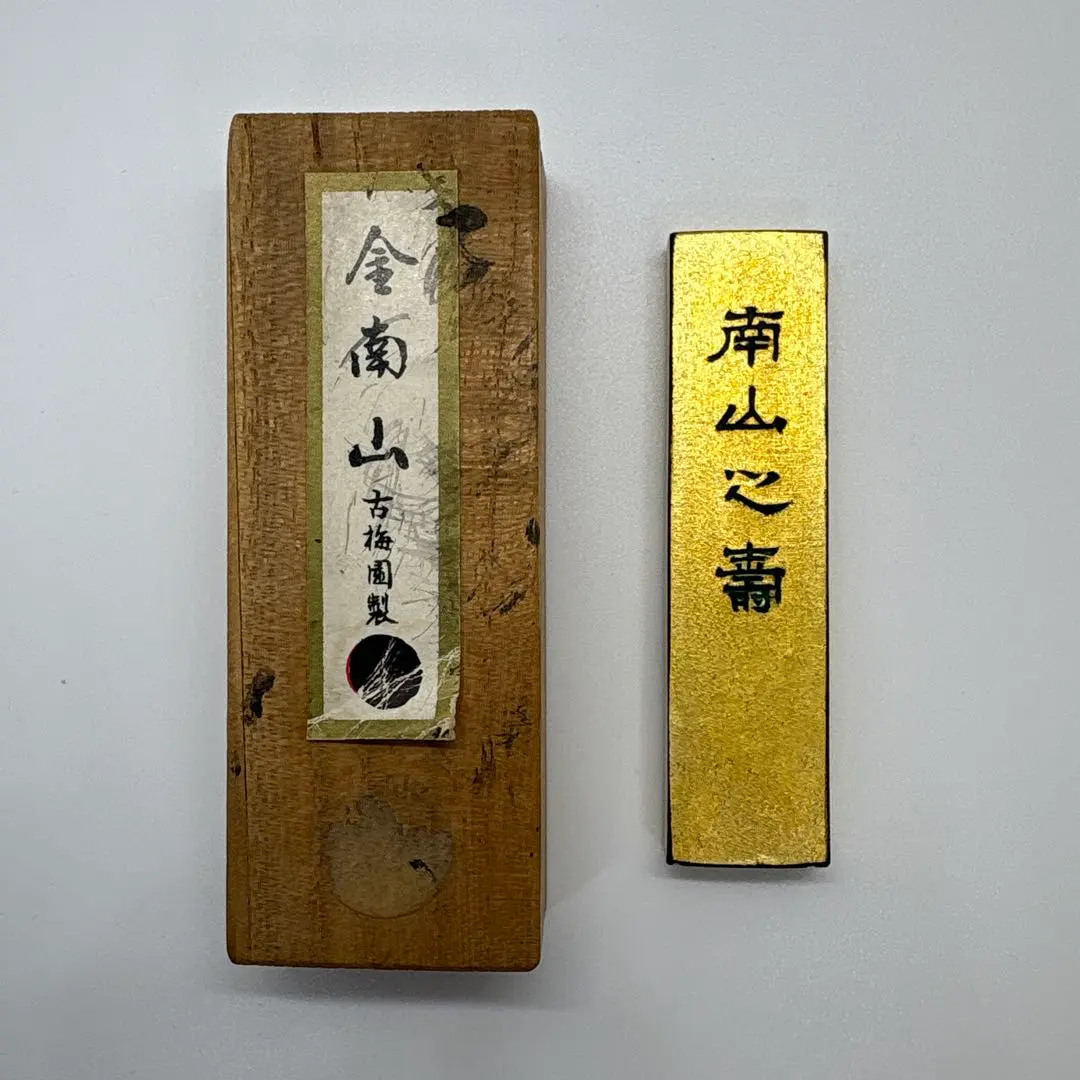 金南山
古梅園製
南山之壽